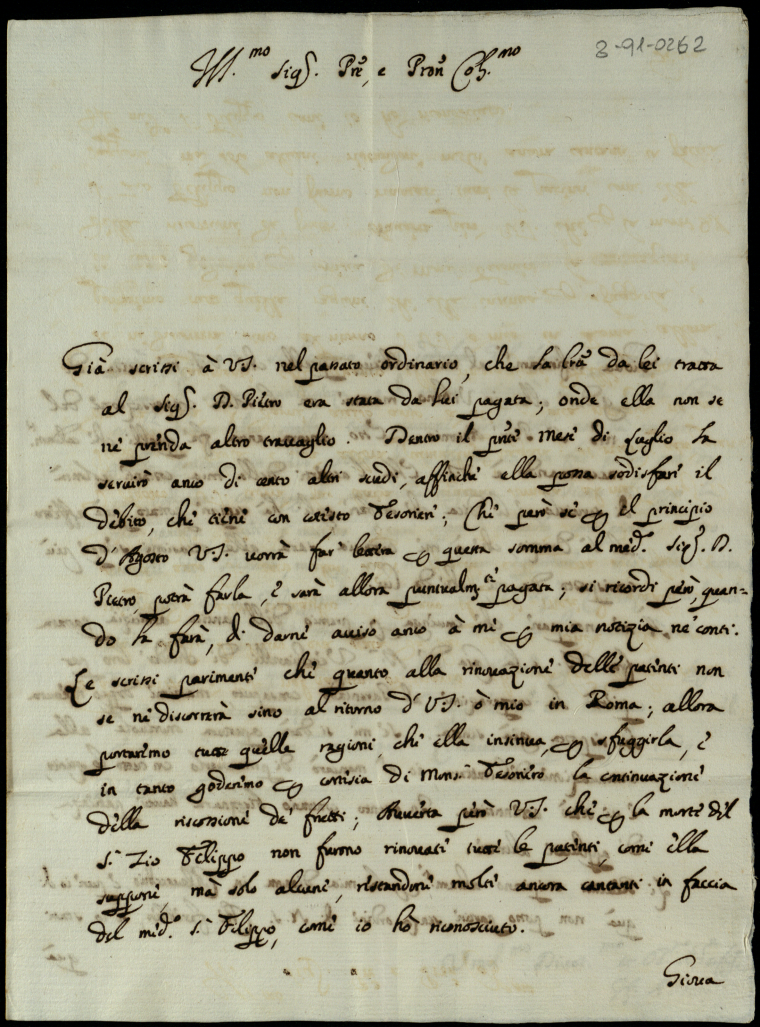 3-91-0262
Ill.mo Sig.r Prē, e Pron Col.mo
Già scrissi à VS. nel passato ordinario, che la lrā da lei tratta
al Sig.r D. Pietro era stata da lui pagata; onde ella non se
ne prenda altro travaglio. Dentro il pnte Mese di Luglio la
servirò anco di cento altri scudi, affinche ella possa sodisfare il
debito, che tiene con cotesto Tesoriere; Che però se p el principio
d'Agosto VS. vorrà far lettera p questa somma al med.o Sig.r D.
Pietro, potrà farla, e sarà allora puntualm.te pagata; si ricordi però, quan=
do la farà, di darne avviso anco à me p mia notizia ne' conti.
Le scrissi parimente che quanto alla rinovazione delle patenti non
se ne discorrerà sino al ritorno d'VS. ò mio in Roma; allora
portaremo tutte quelle ragioni, che ella insinua, p sfuggirla, e
in tanto goderemo p cortesia di Mons.r Tesoriero la continuazione
della riscossione de' frutti; Avverta però VS. che p la morte del
S.r Zio Filippo non furono rinovate tutte le patenti, come ella
suppone, mà solo alcune, restandone molte ancora cantanti in faccia
del med.o S.r Filippo, come io hò riconosciuto.
Giova